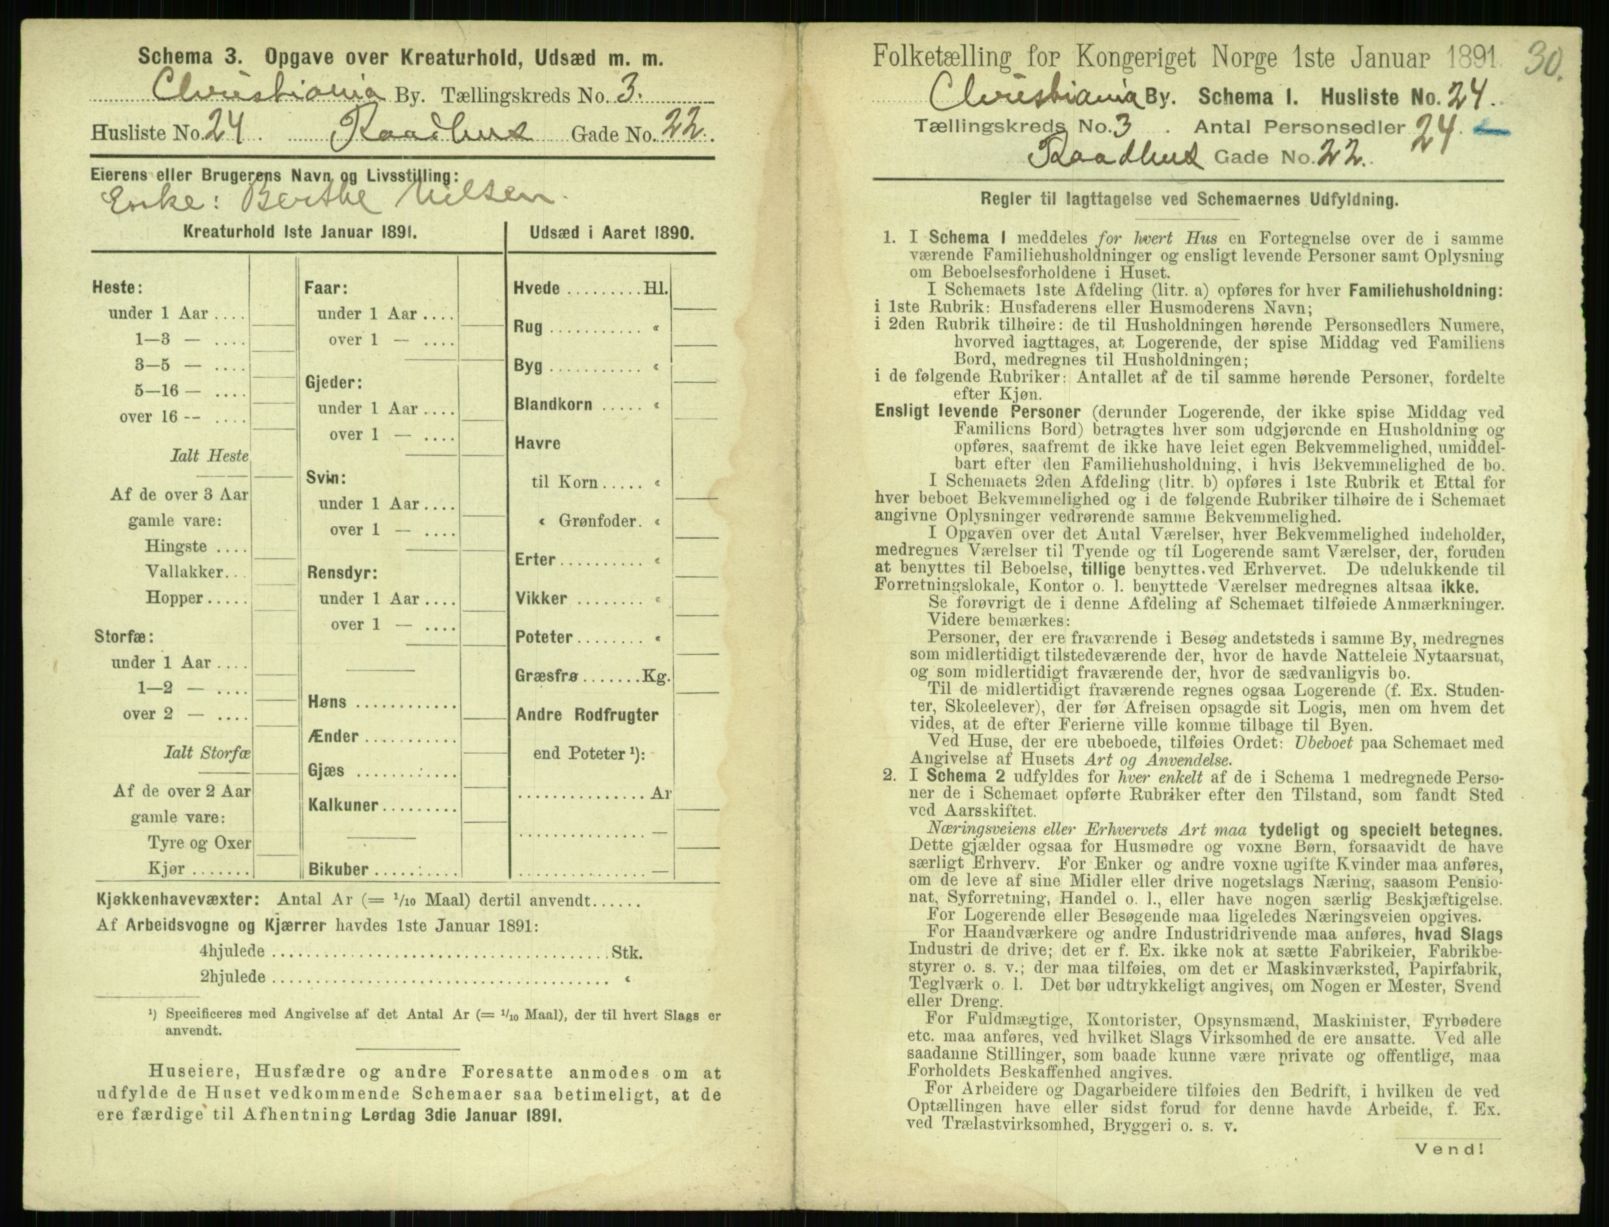 Schema 3. Opgave over Kreaturhold, Udsæd m. m.
Christiania By. Tællingskreds No. 3.
Husliste No. 24. Raadhus Gade No. 22.
Eierens eller Brugerens Navn og Livsstilling:
Enke: Berthe Nielsen.
Kreaturhold 1ste Januar 1891.
Heste:
under 1 Aar ....
1—3 — ....
3—5 — ....
5—16 — ....
over 16 -- ....
Ialt Heste
Af de over 3 Aar
gamle vare:
Hingste ....
Vallakker...
Hopper.....
Storfæ:
under 1 Aar ....
1—2 — ....
over 2 — ....
Ialt Storfæ
Af de over 2 Aar
gamle vare:
Tyre og Oxer
Kjør .......
Faar:
under 1 Aar ....
over 1 — ....
Gjeder:
under 1 Aar ....
over 1 — ....
Svin:
under 1 Aar ....
over 1 — ....
Rensdyr:
under 1 Aar ....
over 1 — ....
Høns ............
Ænder ...........
Gjæs ............
Kalkuner.........
Bikuber ..........
Udsæd i Aaret 1890.
Hvede .........Hl.
Rug .......... «
Byg .......... «
Blandkorn ..... «
Havre
til Korn..... «
« Grønfoder. «
Erter......... «
Vikker ....... «
Poteter....... «
Græsfrø.......Kg.
Andre Rodfrugter
end Poteter ¹):
............... Ar
............... —
............... —
Kjøkkenhavevæxter: Antal Ar (= 1/10 Maal) dertil anvendt......
Af Arbeidsvogne og Kjærrer havdes 1ste Januar 1891:
4hjulede ........................................ Stk.
2hjulede ........................................ «
¹) Specificeres med Angivelse af det Antal Ar (= 1/10 Maal), der til hvert Slags er
anvendt.
Huseiere, Husfædre og andre Foresatte anmodes om at
udfylde de Huset vedkommende Schemaer saa betimeligt, at de
ere færdige til Afhentning Lørdag 3die Januar 1891.
Folketælling for Kongeriget Norge 1ste Januar 1891.
30.
Christiania By. Schema I. Husliste No. 24.
Tællingskreds No. 3. Antal Personsedler 24.
Raadhus Gade No. 22.
Regler til Iagttagelse ved Schemaernes Udfyldning.
1. I Schema I meddeles for hvert Hus en Fortegnelse over de i samme
værende Familiehusholdninger og ensligt levende Personer samt Oplysning
om Beboelsesforholdene i Huset.
I Schemaets 1ste Afdeling (litr. a) opføres for hver Familiehusholdning:
i 1ste Rubrik: Husfaderens eller Husmoderens Navn;
i 2den Rubrik tilhøire: de til Husholdningen hørende Personsedlers Numere,
hvorved iagttages, at Logerende, der spise Middag ved Familiens
Bord, medregnes til Husholdningen;
i de følgende Rubriker: Antallet af de til samme hørende Personer, fordelte
efter Kjøn.
Ensligt levende Personer (derunder Logerende, der ikke spise Middag ved
Familiens Bord) betragtes hver som udgjørende en Husholdning og
opføres, saafremt de ikke have leiet egen Bekvemmelighed, umiddel-
bart efter den Familiehusholdning, i hvis Bekvemmelighed de bo.
I Schemaets 2den Afdeling (litr. b) opføres i 1ste Rubrik et Ettal for
hver beboet Bekvemmelighed og i de følgende Rubriker tilhøire de i Schemaet
angivne Oplysninger vedrørende samme Bekvemmelighed.
I Opgaven over det Antal Værelser, hver Bekvemmelighed indeholder,
medregnes Værelser til Tyende og til Logerende samt Værelser, der, foruden
at benyttes til Beboelse, tillige benyttes ved Erhvervet. De udelukkende til
Forretningslokale, Kontor o. l. benyttede Værelser medregnes altsaa ikke.
Se forøvrigt de i denne Afdeling af Schemaet tilføiede Anmærkninger.
Videre bemærkes:
Personer, der ere fraværende i Besøg andetsteds i samme By, medregnes
som midlertidigt tilstedeværende der, hvor de havde Natteleie Nytaarsnat,
og som midlertidigt fraværende der, hvor de sædvanligvis bo.
Til de midlertidigt fraværende regnes ogsaa Logerende (f. Ex. Studen-
ter, Skoleelever), der før Afreisen opsagde sit Logis, men om hvem det
vides, at de efter Ferierne ville komme tilbage til Byen.
Ved Huse, der ere ubeboede, tilføies Ordet: Ubeboet paa Schemaet med
Angivelse af Husets Art og Anvendelse.
2. I Schema 2 udfyldes for hver enkelt af de i Schema 1 medregnede Perso-
ner de i Schemaet opførte Rubriker efter den Tilstand, som fandt Sted
ved Aarsskiftet.
Næringsveiens eller Erhvervets Art maa tydeligt og specielt betegnes.
Dette gjælder ogsaa for Husmødre og voxne Børn, forsaavidt de have
særligt Erhverv. For Enker og andre voxne ugifte Kvinder maa anføres,
om de leve af sine Midler eller drive nogetslags Næring, saasom Pensio-
nat, Syforretning, Handel o. l., eller have nogen særlig Beskjæftigelse.
For Logerende eller Besøgende maa ligeledes Næringsveien opgives.
For Haandværkere og andre Industridrivende maa anføres, hvad Slags
Industri de drive; det er f. Ex. ikke nok at sætte Fabrikeier, Fabrikbe-
styrer o. s. v.; der maa tilføies, om det er Maskinværksted, Papirfabrik,
Teglværk o. l. Det bør udtrykkeligt angives, om Nogen er Mester, Svend
eller Dreng.
For Fuldmægtige, Kontorister, Opsynsmænd, Maskinister, Fyrbødere
etc. maa anføres, ved hvilket Slags Virksomhed de ere ansatte. Ved alle
saadanne Stillinger, som baade kunne være private og offentlige, maa
Forholdets Beskaffenhed angives.
For Arbeidere og Dagarbeidere tilføies den Bedrift, i hvilken de ved
Optællingen have eller sidst forud for denne havde Arbeide, f. Ex.
ved Trælastvirksomhed, Bryggeri o. s. v.
Vend!